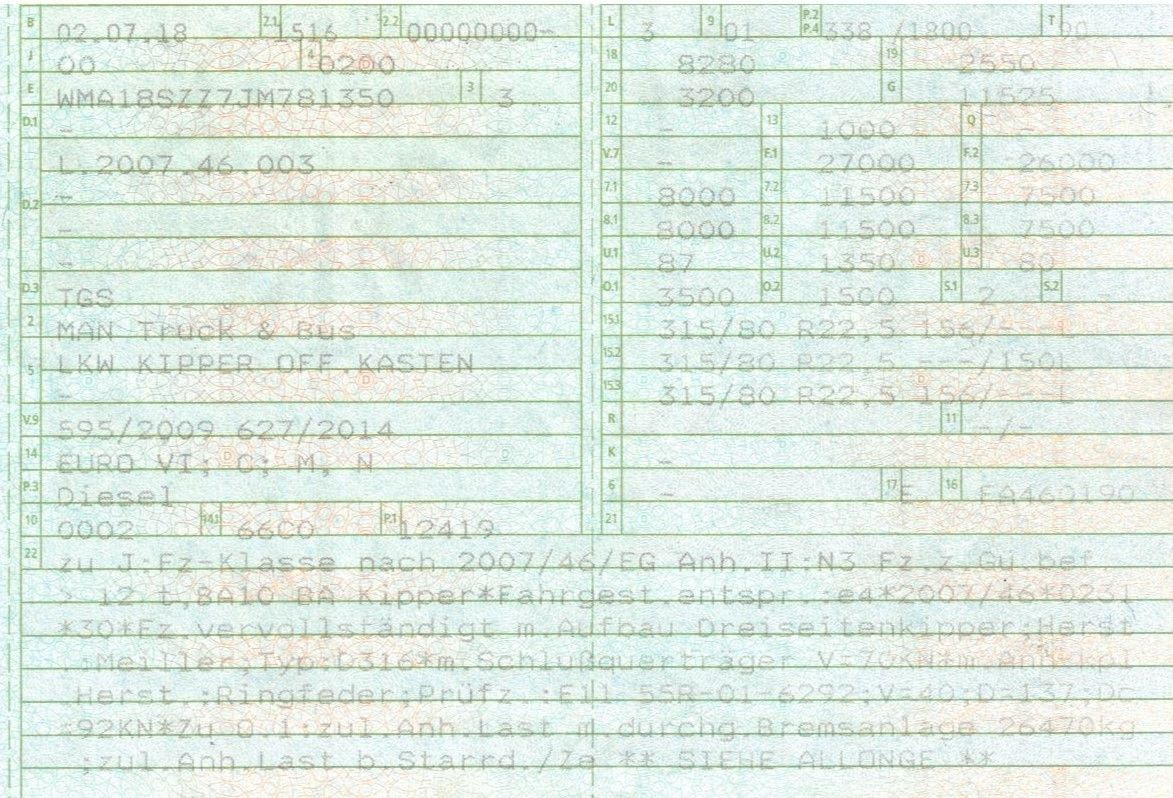 B 02.07.18 2.1 1516 2.2 00000000-
J 00 4 0200
E WMA18SZZ7JM781350 3 3
D.1 -
L.2007.46.003
D.2 -
-
-
D.3 TGS
2 MAN Truck & Bus
5 LKW KIPPER OFF.KASTEN
-
V.9 595/2009 627/2014
14 EURO VI; C; M, N
P.3 Diesel
10 0002 14.1 66C0 P.1 12419
L 3 9 01 P.2 P.4 338 /1800 T 90
18 8280 19 2550
20 3200 G 11525
12 - 13 1000 Q -
V.7 - F.1 27000 F.2 26000
7.1 8000 7.2 11500 7.3 7500
8.1 8000 8.2 11500 8.3 7500
U.1 87 U.2 1350 U.3 80
O.1 3500 O.2 1500 S.1 2 S.2
15.1 315/80 R22,5 156/---L
15.2 315/80 R22,5 ---/150L
15.3 315/80 R22,5 156/---L
R 11 -/-
K -
6 - 17 E 16 FA460190
21
22 zu J:Fz-Klasse nach 2007/46/EG Anh.II:N3 Fz.z.Gü.bef
> 12 t,BA10 BA Kipper*Fahrgest.entspr.:e4*2007/46*0231
*30*Fz.vervollständigt m.Aufbau Dreiseitenkipper;Herst
.:Meiller;Typ:D316*m.Schlußquerträger V=70KN*m.Anh-kpl
Herst.:Ringfeder;Prüfz.:E11 55R-01-6292;V=40;D=137;Dc
=92KN*Zu O.1:zul.Anh.Last m.durchg.Bremsanlage 26470kg
;zul.Anh.Last b.Starrd./Ze ** SIEHE ALLONGE **